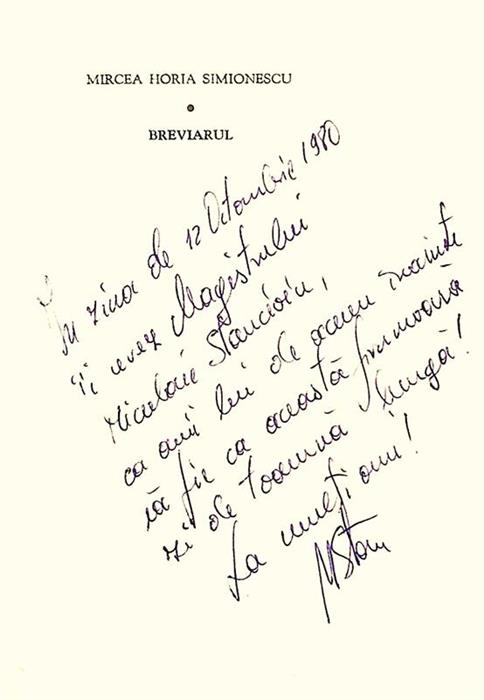 MIRCEA HORIA SIMIONESCU
BREVIARUL
În ziua de 12 Octombrie 1980
îi urez Magistrului
Niculaie Stanciviu,
ca anii lui de acum înainte
să fie ca această frumoasă
zi de toamnă lungă!
La mulți ani!
MStan